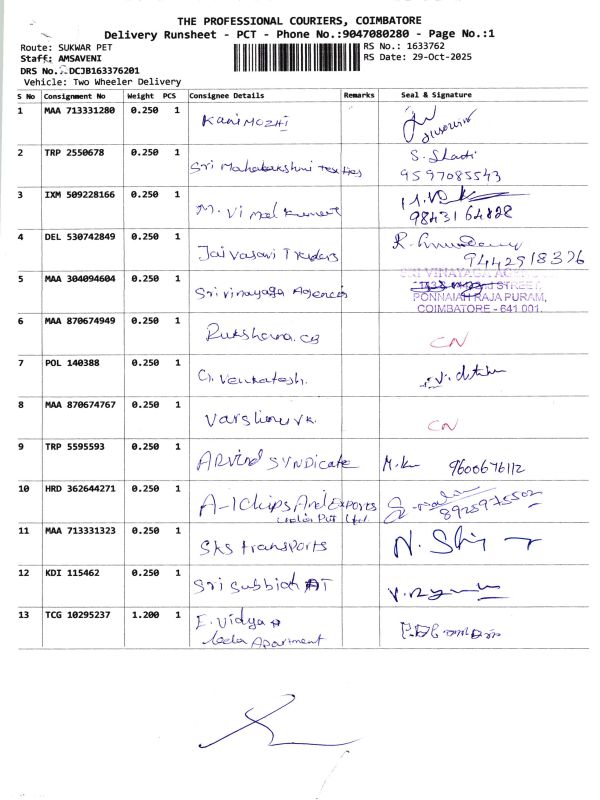 THE PROFESSIONAL COURIERS, COIMBATORE
Delivery Runsheet - PCT - Phone No.:9047080280 - Page No.:1
Route: SUKWAR PET
Staff: AMSAVENI
DRS No. DCJB163376201
Vehicle: Two Wheeler Delivery
RS No.: 1633762
RS Date: 29-Oct-2025
S No Consignment No Weight PCS Consignee Details Remarks Seal & Signature
1 MAA 713331280 0.250 1 Kani MOZHI
2 TRP 2550678 0.250 1 Sri Mahalakshmi Textiles S.
9597085543
3 IXM 509228166 0.250 1 M. Vimal Kumar
98431 64828
4 DEL 530742849 0.250 1 Jai Vasavi Traders R.
9442918326
5 MAA 304094604 0.250 1 Sri vinayaga Agencies SRI VINAYAGA
STREET,
PONNAIAH RAJA PURAM,
COIMBATORE - 641 001.
6 MAA 870674949 0.250 1 Rukshana. CB CN
7 POL 140388 0.250 1 G. Venkatesh.
8 MAA 870674767 0.250 1 CN
9 TRP 5595593 0.250 1 ARvind SYNDicate M.K 9600676112
10 HRD 362644271 0.250 1 A-1 Chips And Exports
India Pvt Ltd. 8925975502
11 MAA 713331323 0.250 1 SKS transports
12 KDI 115462 0.250 1 Sri Subbiah
13 TCG 10295237 1.200 1 E. Vidya
Apartment